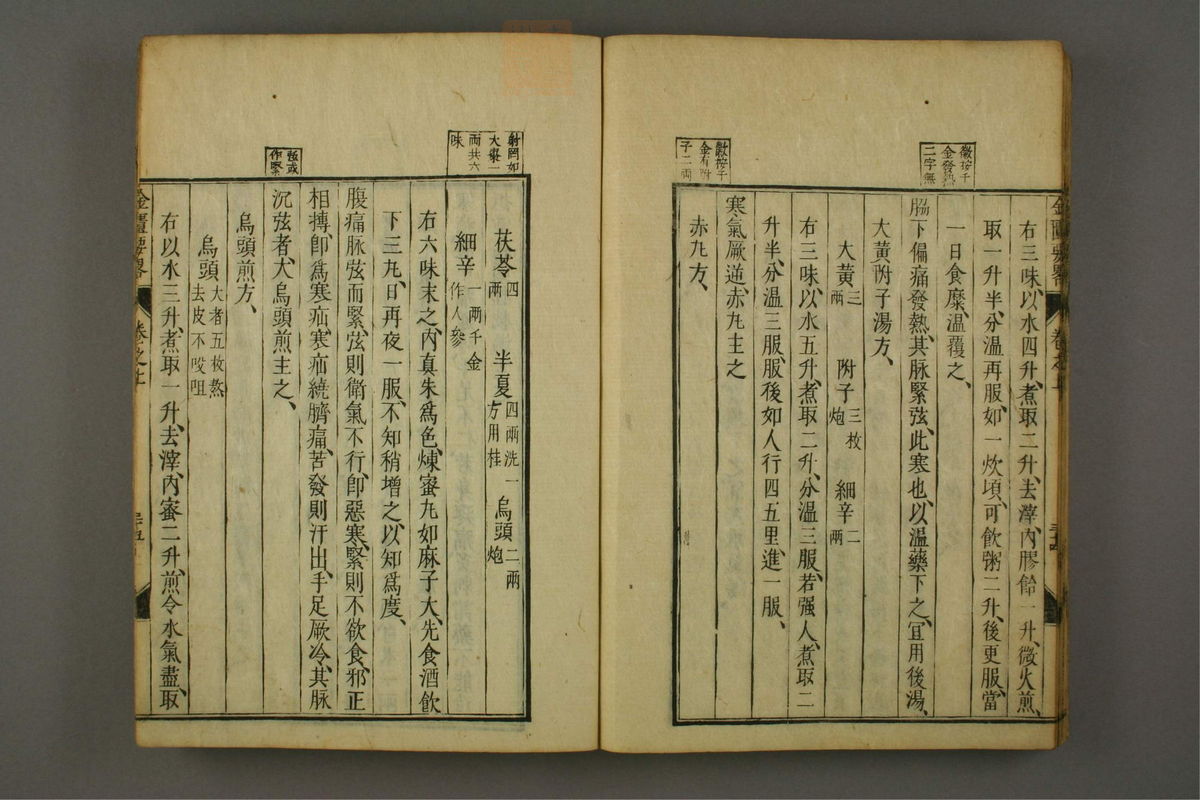 徵按千
金發熱
二字無
數按千
金有附
子二兩
金匱要畧
卷之上
三十四
右三味、以水四升、煮取二升、去滓、內膠飴一升、微火煎、
取一升半、分溫再服、如一炊頃、可飲粥二升、後更服、當
一日食糜、溫覆之、
脇下偏痛發熱、其脉緊弦、此寒也、以溫藥下之、宜用後湯、
大黃附子湯方、
大黃三兩 附子三枚炮 細辛二兩
右三味、以水五升、煮取二升、分溫三服、若强人、煮取二
升半、分溫三服、服後如人行四五里、進一服、
寒氣厥逆、赤丸主之
赤丸方、
射罔如
大棗一
兩共六
味
弦或
作緊
茯苓四兩 半夏四兩洗一方用桂 烏頭二兩炮
細辛一兩千金作人參
右六味末之、內真朱爲色、煉蜜丸如麻子大、先食酒飲
下三丸、日再夜一服、不知稍增之、以知爲度、
腹痛脉弦而緊、弦則衛氣不行、卽惡寒、緊則不欲食、邪正
相摶、卽爲寒疝、寒疝繞臍痛、苦發則汗出、手足厥冷、其脉
沉弦者、大烏頭煎主之、
烏頭煎方、
烏頭大者五枚熬去皮不㕮咀
右以水三升、煮取一升、去滓、內蜜二升、煎令水氣盡、取
金匱要畧
卷之上
三十五